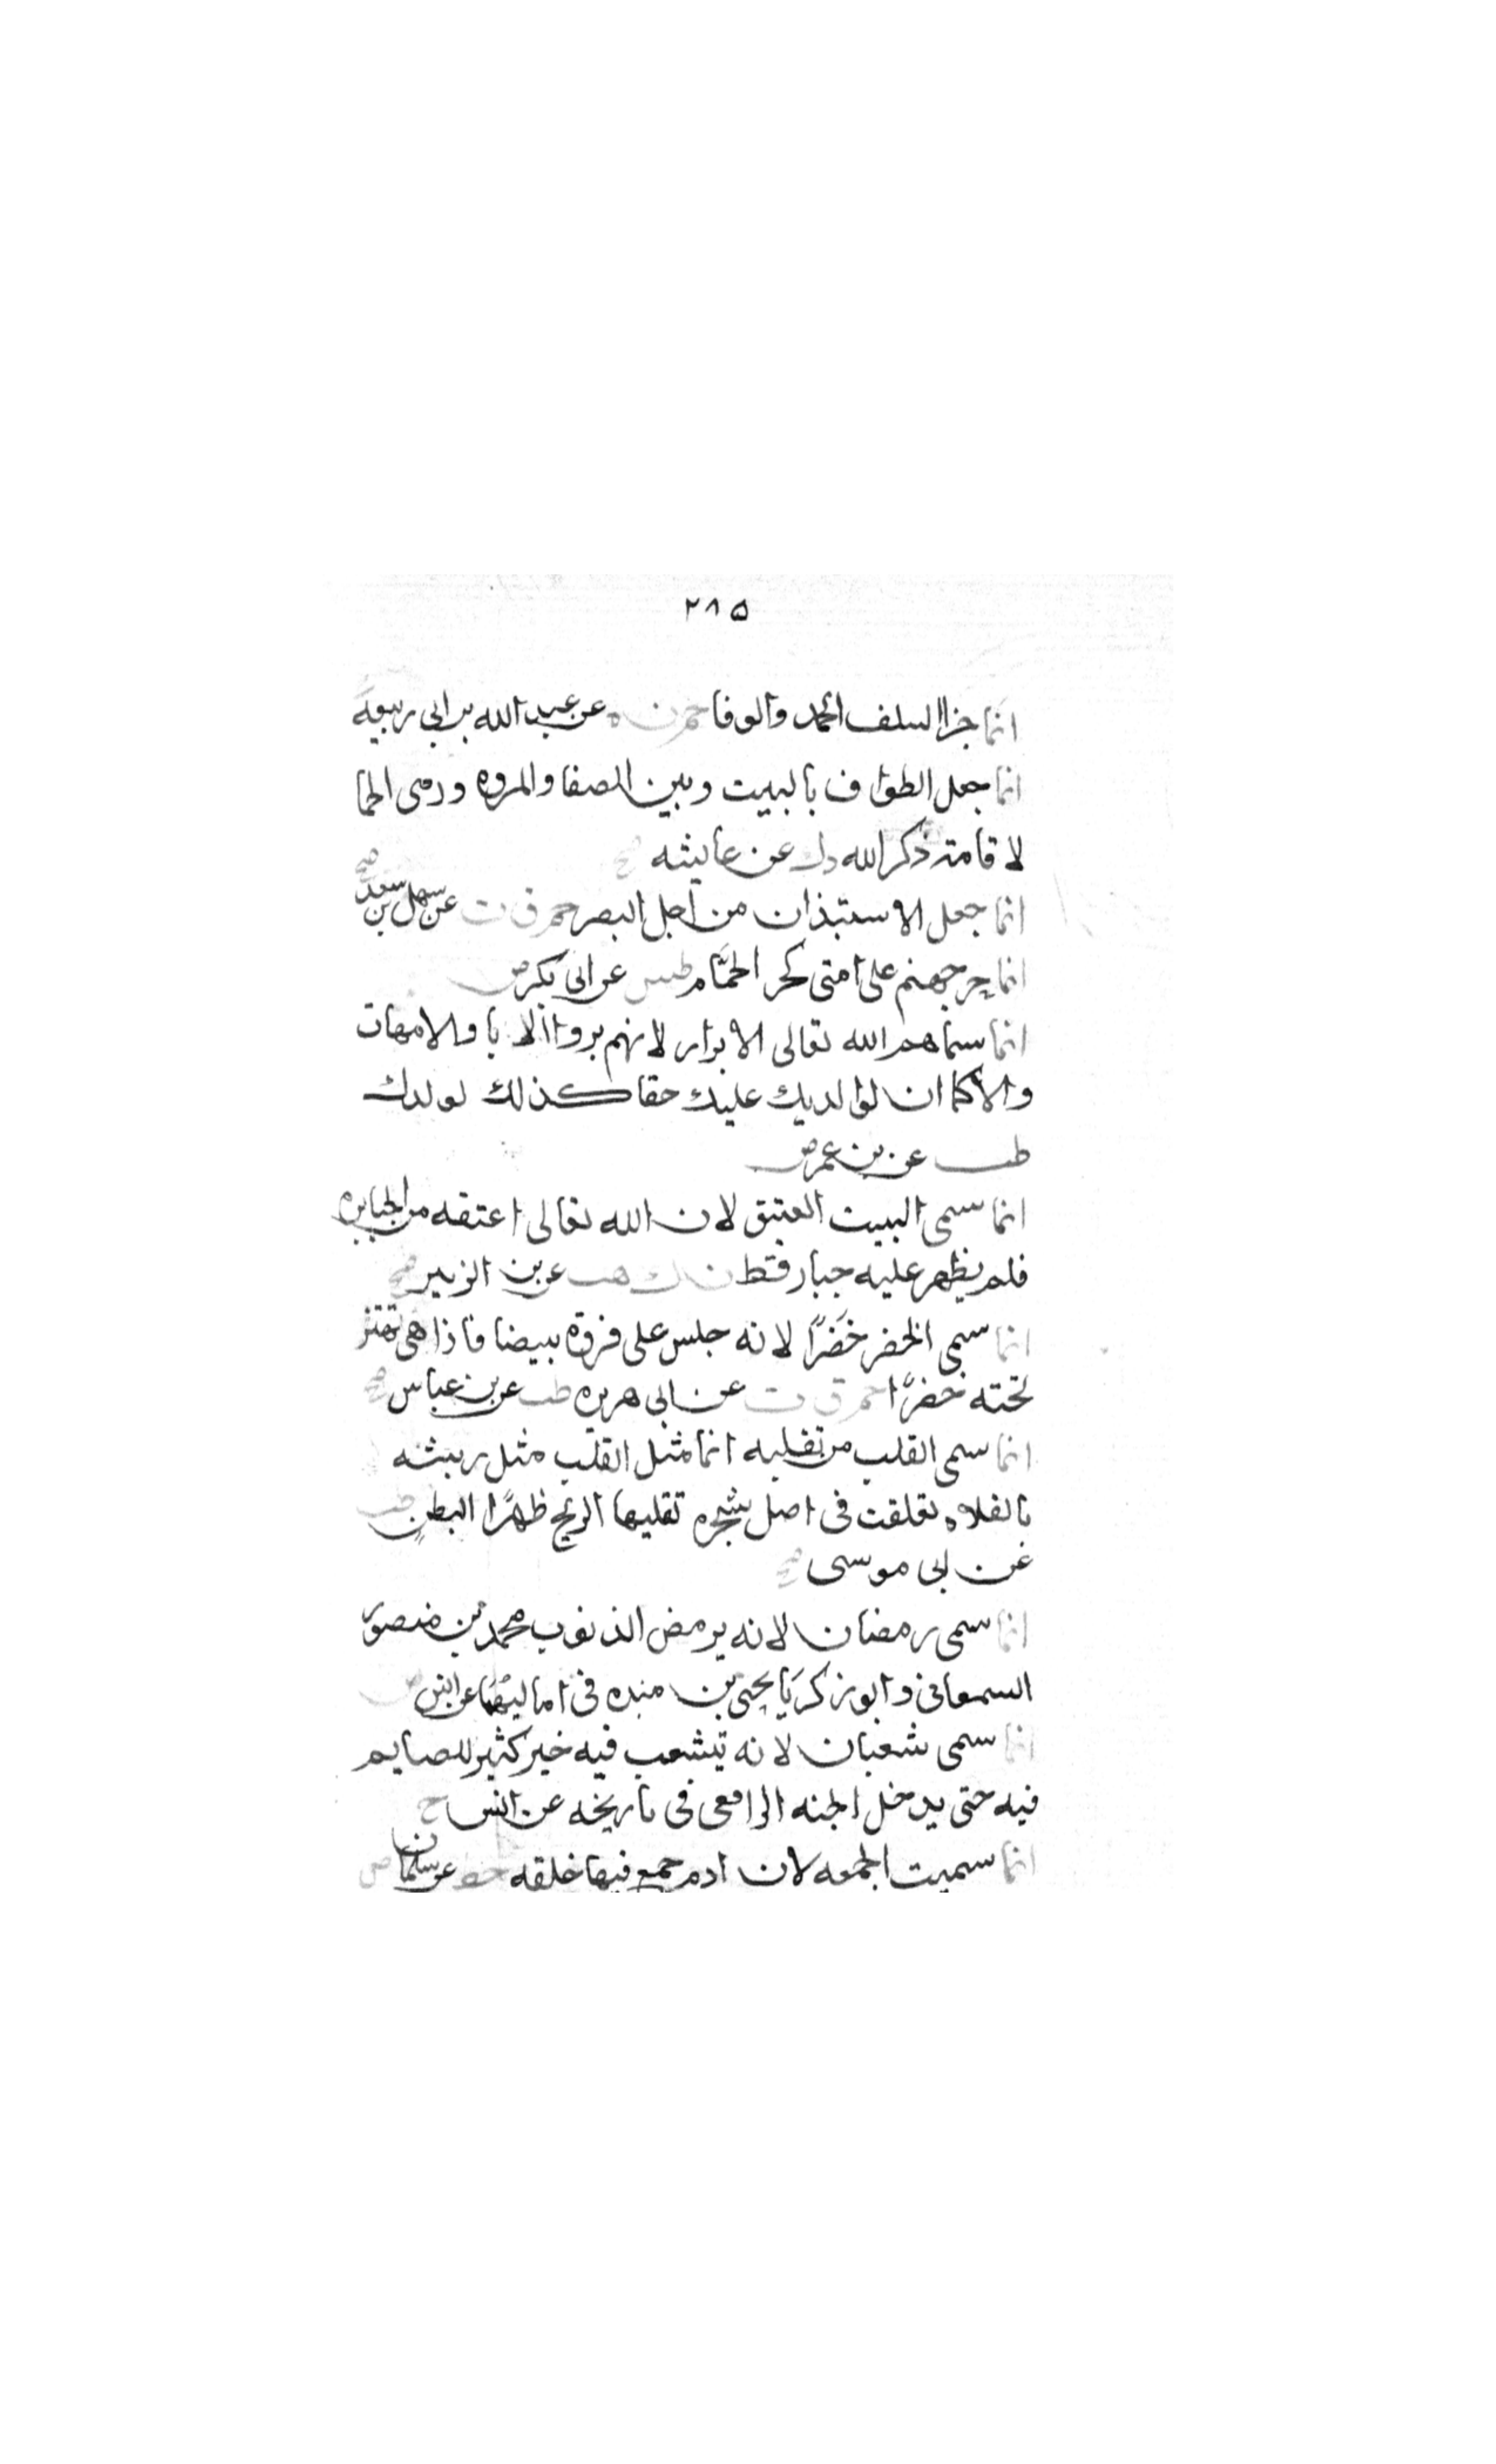 ٢٨٥
انما جزا السلف الحمد والوفا حم ن ه عن عبد الله بن ابى ربيعة
انما جعل الطواف بالبيت وبين الصفا والمروه ورمى الجما
لاقامة ذكر الله د ك عن عايشه صح
انما جعل الاستيذان من اجل البصر حم ق ت عن سهل بن سعد صح
انما حر جهنم على امتى كحر الحمّام طس عن ابى بكر ض
انما سماهم الله تعالى الابرار لانهم بروا الابا والامهات
والا كما ان لوالديك عليك حقا كذلك لولدك
طب عن بن عمر ض
انما سمى البيت العتيق لان الله تعالى اعتقه من الجبابره
فلم يظهر عليه جبار قط ت ك هب عن بن الزبير صح
انما سمى الخضر خَضرًا لانه جلس على فروة بيضا فاذا هى تهتز
تحته خضرًا حم ق ت عن ابى هريره طب عن بن عباس صح
انما سمى القلب من تقلبه انما مثل القلب مثل ريشه
بالفلاه تعلقت فى اصل شجره تقلبها الريح ظهرًا لبطنٍ طب
عن ابى موسى صح
انما سمى رمضان لانه يرمض الذنوب محمد بن منصور
السمعانى وابو زكريا يحيى بن منده فى اماليهما عن انس ض
انما سمى شعبان لانه يتشعب فيه خير كثير للصايم
فيه حتى يدخل الجنه الرافعى فى تاريخه عن انس ح
انما سميت الجمعه لان ادم جمع فيها خلقه خط عن سلمان ض